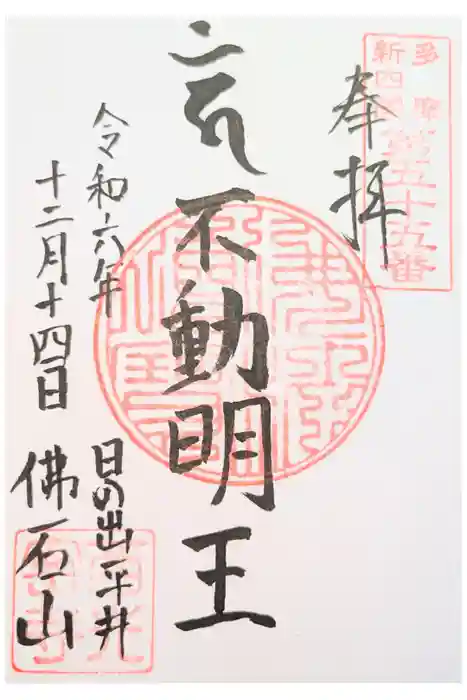 多摩
新四国
第五十五番
奉拝
不動明王
令和六年
十二月十四日
日の出平井
佛石山